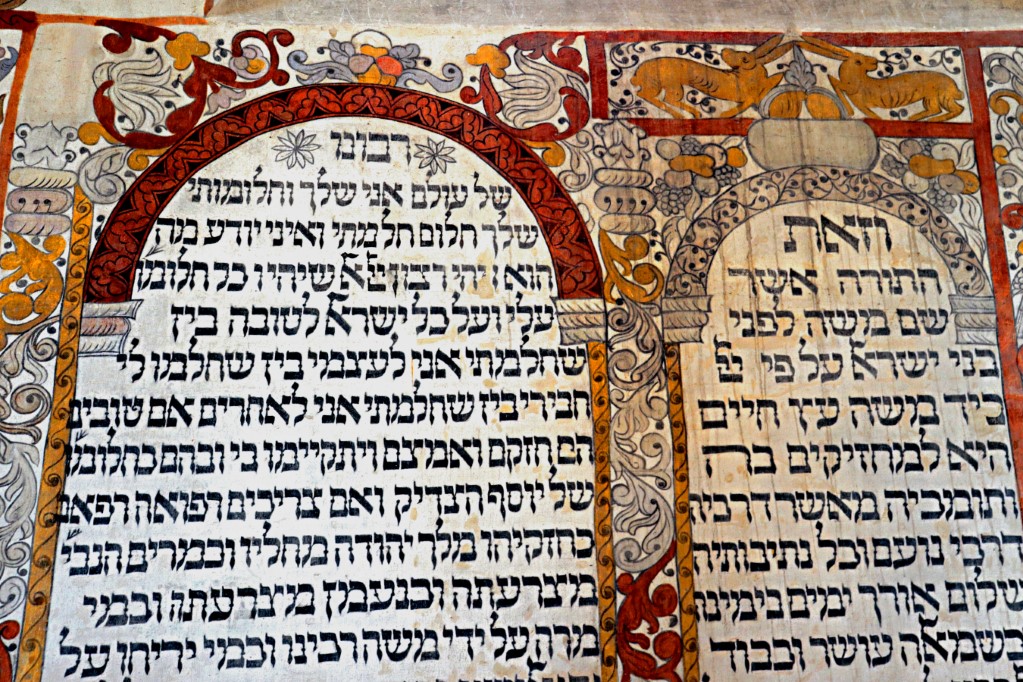 וזאת
התורה אשר
שם משה לפני
בני ישראל על פי
ביד משה עץ חיים
היא למחזיקים בה
ותומכיה מאשר דרכיה
דרכי נועם וכל נתיבותיה
שלום אורך ימים בימינה
בשמאלה עושר וכבוד
רבונו
של עולם אני שלך וחלומותי
שלך חלום חלמתי ואיני יודע מה
הוא יהי רצון שיהיו כל
עלי ועל כל ישראל לטובה בין
שחלמתי אני לעצמי בין שחלמו לי
חבירי בין שחלמתי אני לאחרים אם טובים
הם חזקם ואמצם ויתקיימו בי ובהם
של יוסף הצדיק ואם צריכים רפואה רפאם
כחזקיהו מלך יהודה מחליו וכמרים
מצרעתה וכנעמן וכמי
מרה על ידי משה רבינו וכמי יריחו על